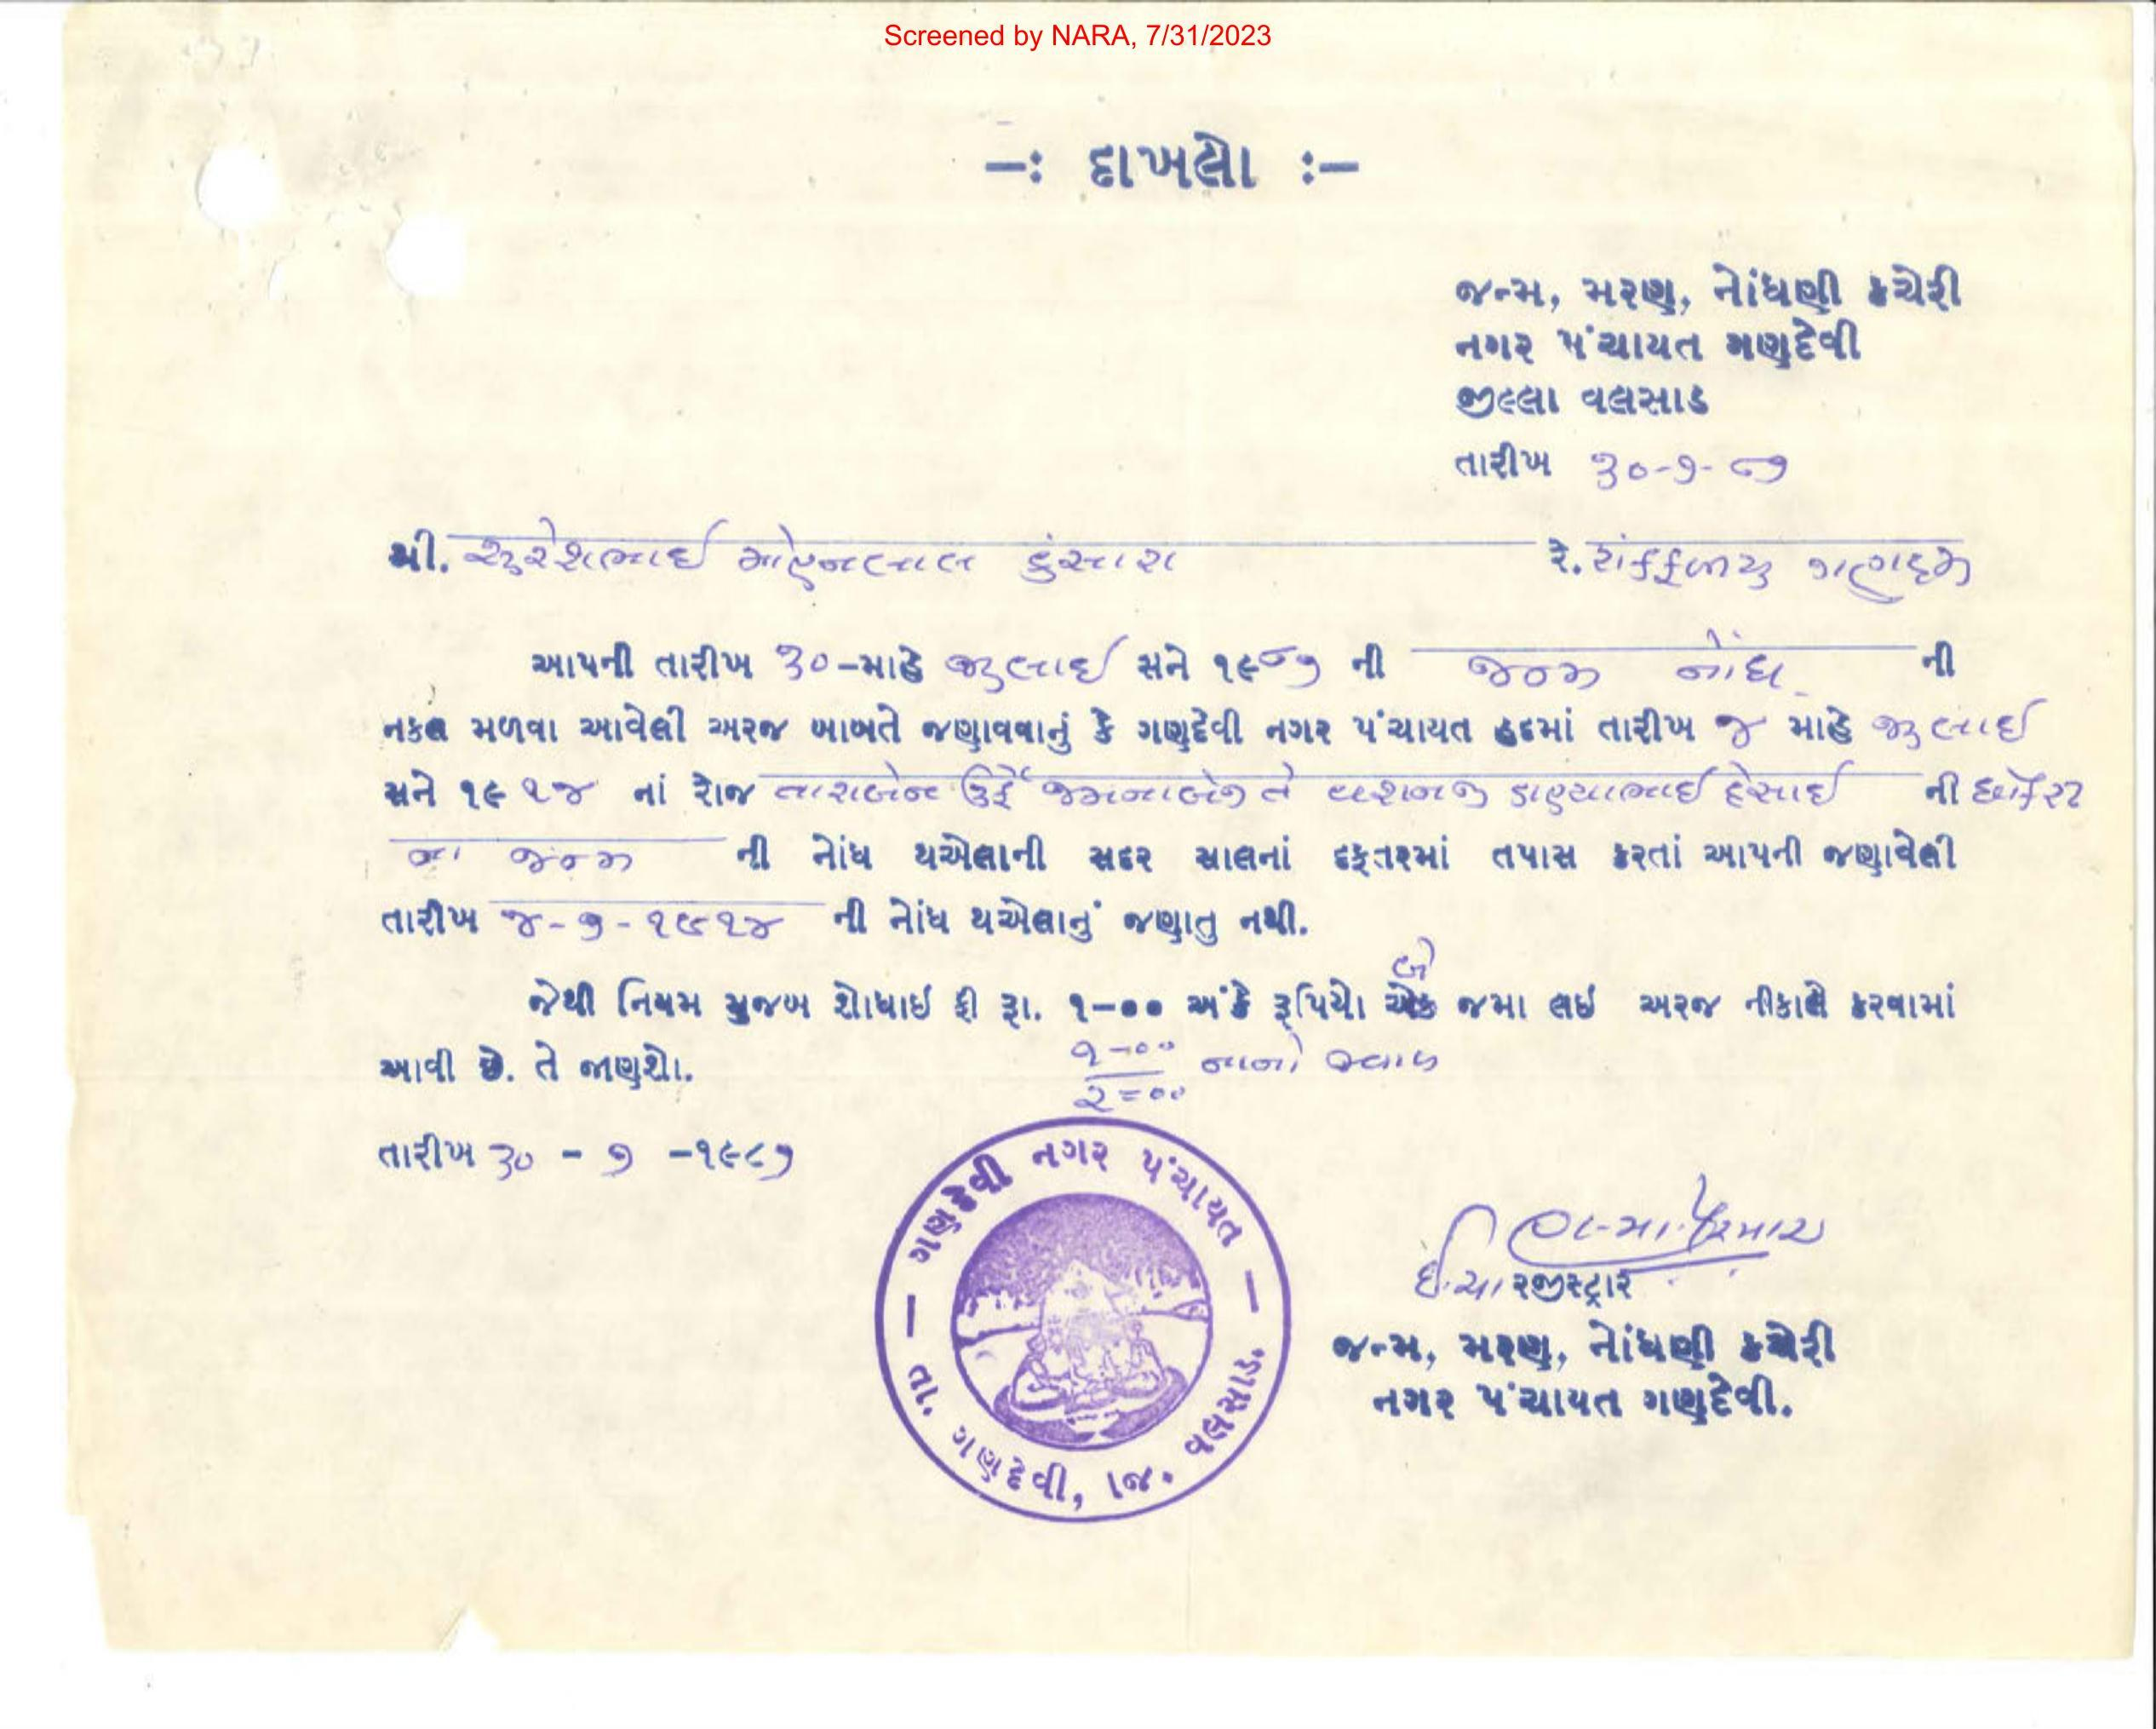 Screened by NARA, 7/31/2023
—: દાખલો :—
જન્મ, મરણ, નોંધણી કચેરી
નગર પંચાયત ગણદેવી
જીલ્લા વલસાડ
તારીખ ૩૦-૭-૮૭
શ્રી. સુરેશભાઈ મોહનલાલ કંસારા રે.
આપની તારીખ ૩૦-માહે જુલાઈ સને ૧૯૮૭ ની જન્મ નોંધ ની
નકલ મળવા આવેલી અરજ બાબતે જણાવવાનું કે ગણદેવી નગર પંચાયત હદમાં તારીખ ૪ માહે જુલાઈ
સને ૧૯૨૪ નાં રોજ તારાબેન ઉર્ફે જમનાબેન તે ડાહ્યાભાઈ દેસાઈ ની
ના જન્મ ની નોંધ થએલાની સદર સાલનાં દફતરમાં તપાસ કરતાં આપની જણાવેલી
તારીખ ૪-૭-૧૯૨૪ ની નોંધ થએલાનું જણાતુ નથી.
બે
જેથી નિયમ મુજબ શોધાઈ ફી રૂા. ૧-૦૦ અંકે રૂપિયો એક જમા લઈ અરજ નીકાલ કરવામાં
આવી છે. તે જાણશો.
૧-૦૦
૨=૦૦
તારીખ ૩૦ - ૭ -૧૯૮૭
ગણદેવી નગર પંચાયત
તા. ગણદેવી, જિ. વલસાડ.
ઈ.ચા રજીસ્ટ્રાર
જન્મ, મરણ, નોંધણી કચેરી
નગર પંચાયત ગણદેવી.